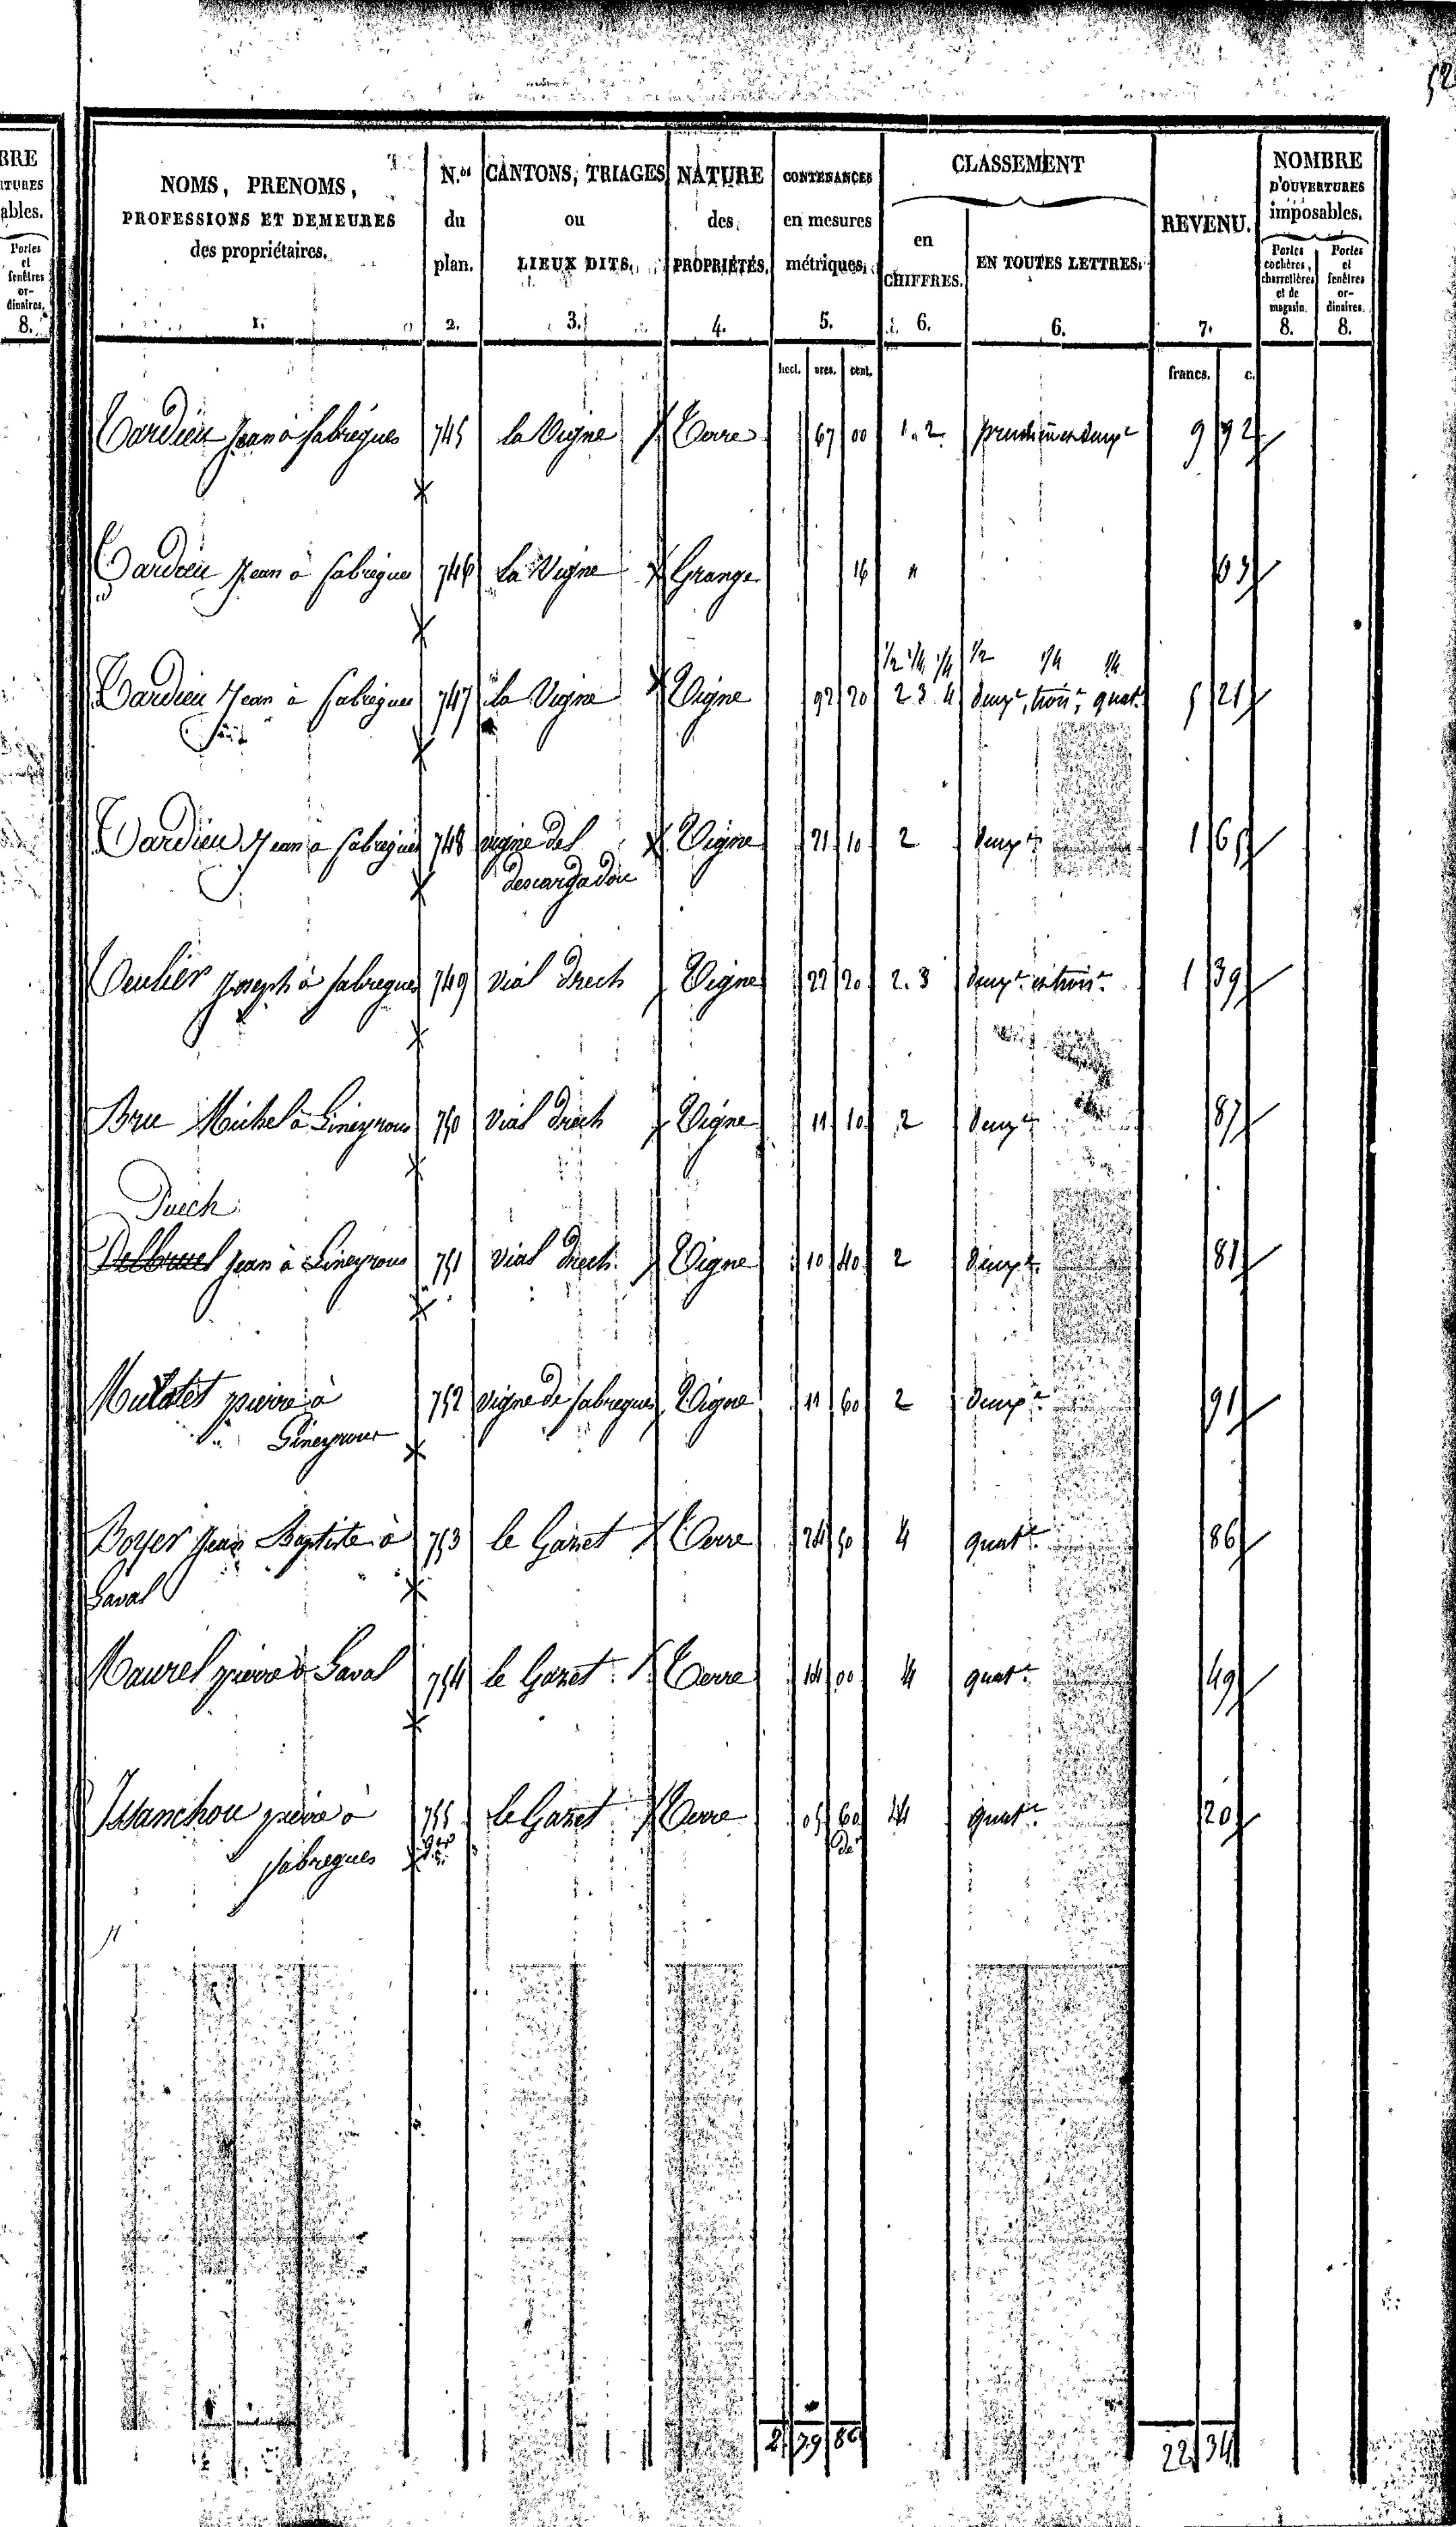 52
BRE
RTURES
ables.
Portes
et
fenêtres
or-
dinaires.
8.
NOMS, PRENOMS,
PROFESSIONS ET DEMEURES
des propriétaires.
1.
N.os
du
plan.
2.
CANTONS, TRIAGES
ou
LIEUX DITS.
3.
NATURE
des
PROPRIÉTÉS.
4.
CONTENANCES
en mesures
métriques.
5.
CLASSEMENT
en
CHIFFRES.
6.
EN TOUTES LETTRES.
6.
REVENU.
7.
NOMBRE
D'OUVERTURES
imposables.
Portes
cochères,
charretières
et de
magasin.
8.
Portes
et
fenêtres
or-
dinaires.
8.
hect. ares. cent. francs. c.
Tardieu Jean à fabrègues 745 la Vigne Terre 67 00 1. 2 9 92
Tardieu Jean à fabregues 746 La Vigne Grange 16 " 63
1/2 1/4 1/4 1/2 1/4 1/4
Tardieu Jean à fabregues 747 la Vigne Vigne 92 20 2 3 4 deux.e, trois.e, quat. 5 21
Tardieu Jean a fabregues 748 vigne del Vigne 21 10 2 deux.e 1 65
descargadou
Joseph à fabregues 749 vial drech Vigne 22 20 2. 3 deux.e et trois.e 1 39
Bru Michel à Gineyrous 750 vial drech Vigne 11 10 2 deux.e 87
Puech
Delbruel Jean à Gineyrous 751 vial drech Vigne 10 40 2 deux.e 81
Mulatet pierre à 752 vigne de fabregues Vigne 11 60 2 deux.e 91
Gineyrous
Boyer Jean Baptiste à 753 le Garret Terre 24 50 4 quat.e 86
Laval
Maurel pierre à Laval 754 le Garret Terre 14 00 4 quat.e 49
Issanchou pierre à 755 le Garret Terre 05 60 4 quat.e 20
fabregues
11
2 79 86 22 34